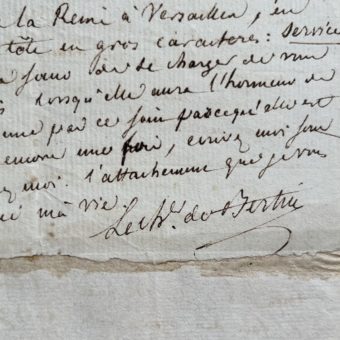 la Reine à Versailles, en
tôte en gros caracteres: service
de se charger de vous
lorsqu'elle aura l'honneur de
par ce soin parcequ'elle est
encore une fois, ecrivez moi sous
ez moi. l'attachement que je vous
ma vie.
Le ch.r de Bertin